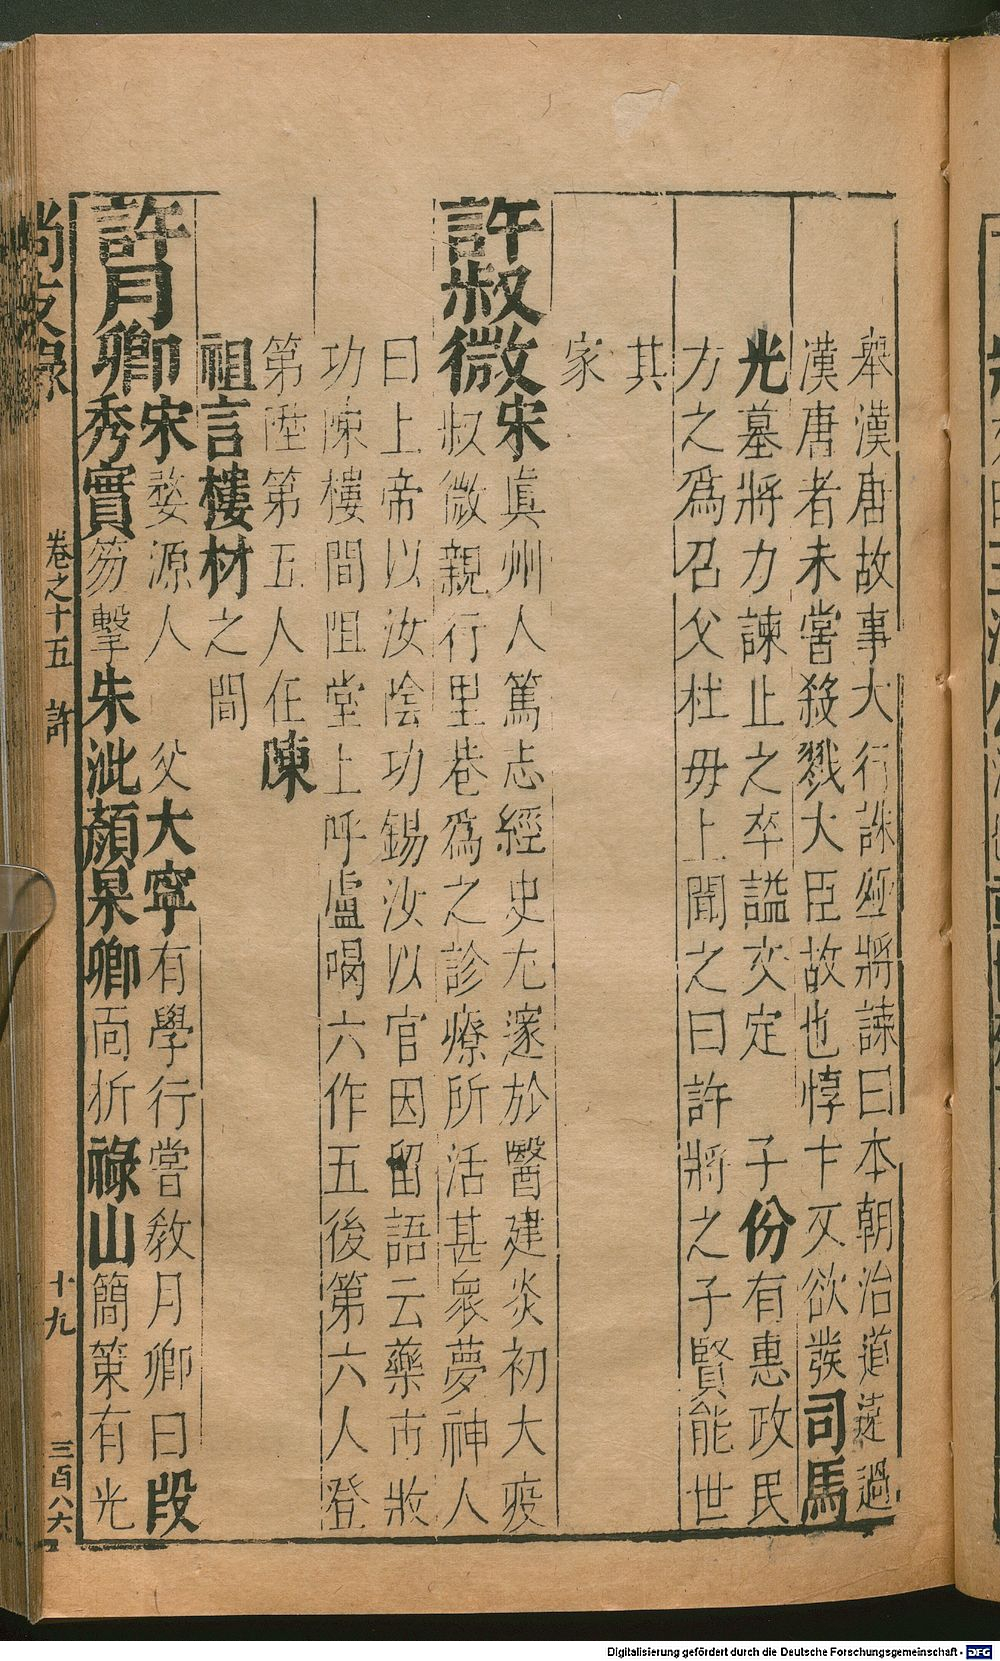 舉漢唐故事大行誅殛將諫曰本朝治道遠過
漢唐者未嘗殺戮大臣故也惇卞又欲發司馬
光墓將力諫止之卒謚文定 子份有惠政民
方之為召父杜毋上聞之曰許將之子賢能世
其
家
許叔微宋眞州人篤志經史尤邃於醫建炎初大疫
叔微親行里巷為之診療所活甚衆夢神人
曰上帝以汝陰功錫汝以官因留語云藥市收
功陳樓間阻堂上呼盧喝六作五後第六人登
第陞第五人在陳
祖言樓材之間
許月卿宋婺源人 父大寧有學行嘗教月卿曰段
秀實笏擊朱泚顏杲卿面折祿山簡策有光
尚友錄
卷之十五 許
十九
三百八六
Digitalisierung gefördert durch die Deutsche Forschungsgemeinschaft - DFG